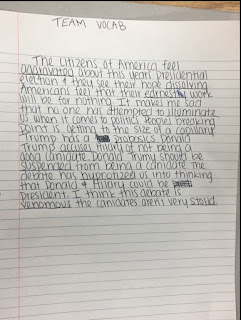 TEAM VOCAB
The citizens of America feel
aggravated about this years presidential
election & they see their hope dissolving
Americans feel that their earnest work
will be for nothing. It makes me sad
that no one has attempted to illuminate
us when it comes to politics. Peoples breaking
point is getting to the size of a capillary
Trump has a proboscis. Donald
Trump accuses Hilary of not being a
good canidate. Donald Trump should be
suspended from being a canidate. The
debate has hypnotized us into thinking
that Donald & Hilary could be
president. I think this debate is
venomous the canidates arent very stolid.